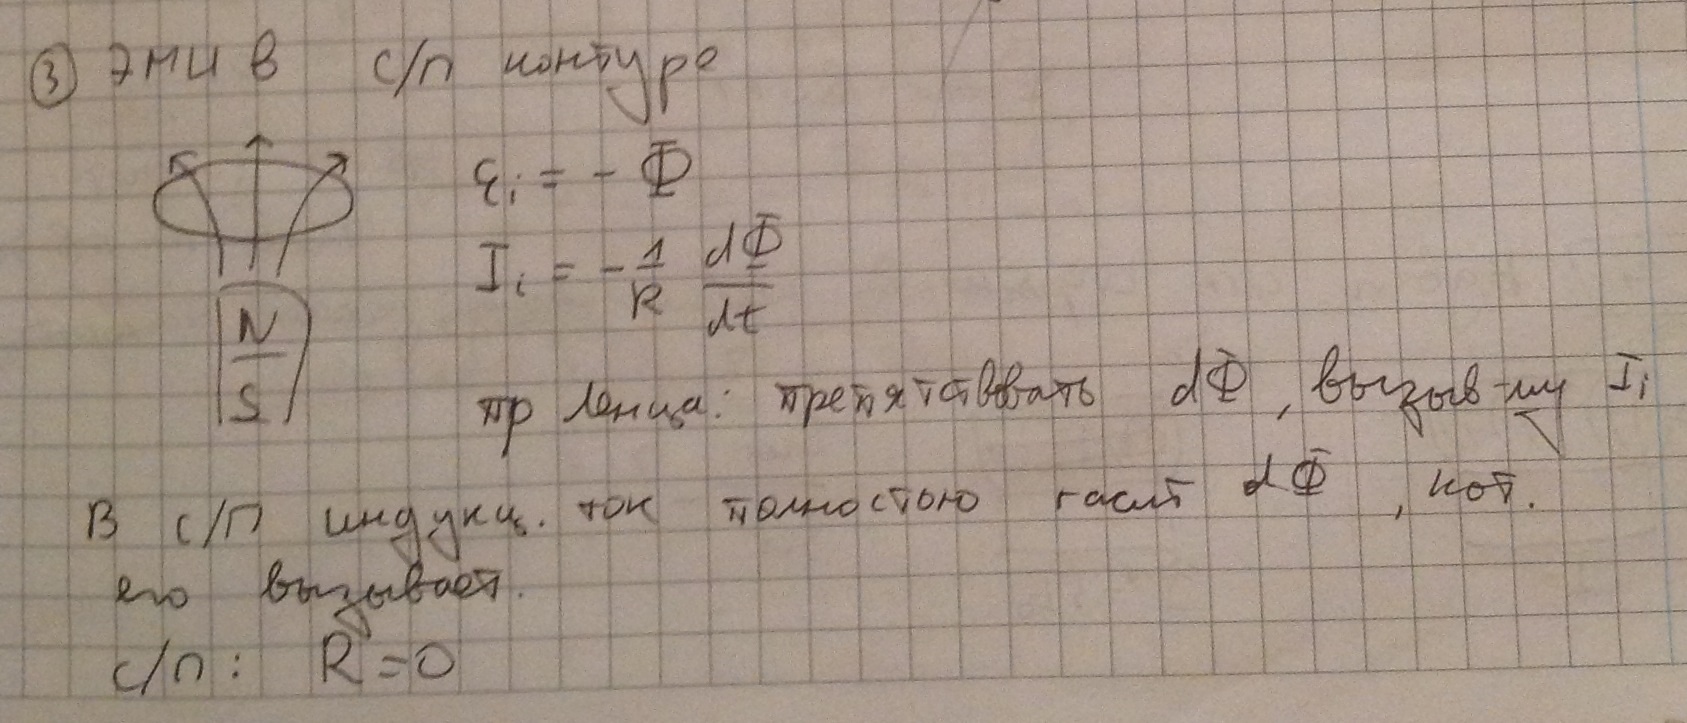 ③ ЭМИ в с/п контуре
εi = - Ф
Ii = - 1/R dФ/dt
N
S
пр Ленца: препятствовать dФ, вызыв-му Ii
В с/п индукц. ток полностью гасит dФ, кот.
его вызывает.
с/п: R=0